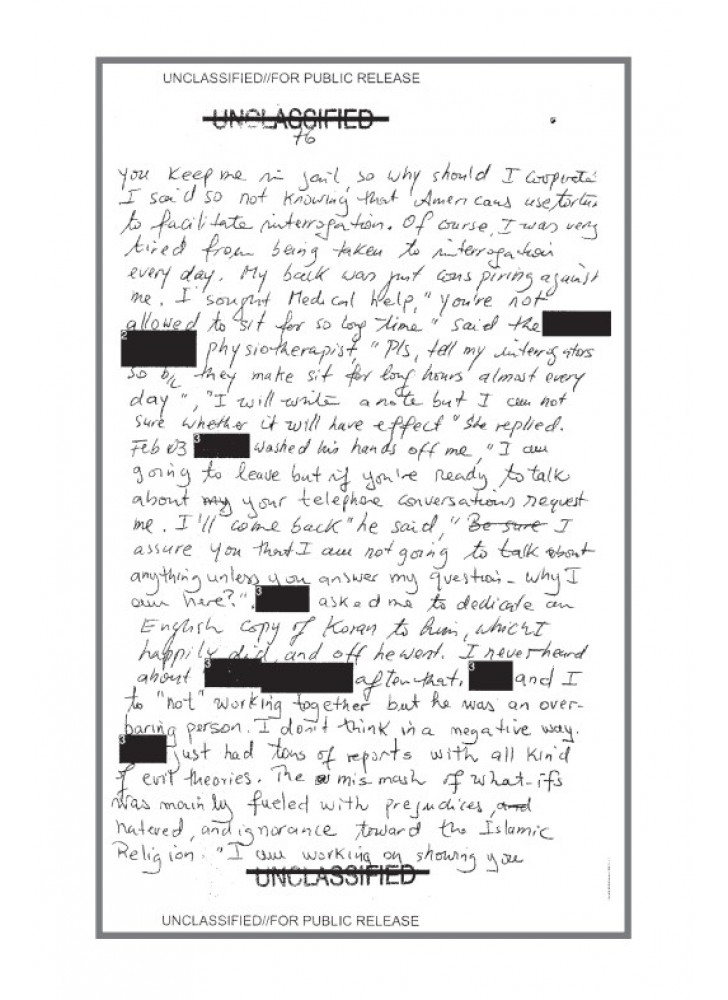 UNCLASSIFIED//FOR PUBLIC RELEASE
UNCLASSIFIED
76
you keep me in jail, so why should I cooperate
I said so not knowing that Americans use tortur
to facilitate interrogation. Of course, I was very
tired from being taken to interrogation
every day. My back was just conspiring against
me. I sought Medical help, "you're not
allowed to sit for so long time" said the
2
physiotherapist, "Pls, tell my interrogators
so b/c they make sit for long hours almost every
day", "I will write a note but I am not
sure whether it will have effect" she replied.
Feb 03 3 washed his hands off me, "I am
going to leave but if you're ready to talk
about my your telephone conversations request
me. I'll come back" he said, " Be sure I
assure you that I am not going to talk about
anything unless you answer my question - why I
am here?". 3 asked me to dedicate an
English copy of Koran to him, which I
happily did, and off he went. I never heard
about 3 after that. 3 and I
to "not" working together but he was an over-
baring person. I don't think in a negative way.
3 just had tons of reports with all kind
of evil theories. The mis mash of what-ifs
was mainly fueled with prejudices, and
hatered, and ignorance toward the Islamic
Religion. "I am working on showing you
UNCLASSIFIED
UNCLASSIFIED//FOR PUBLIC RELEASE